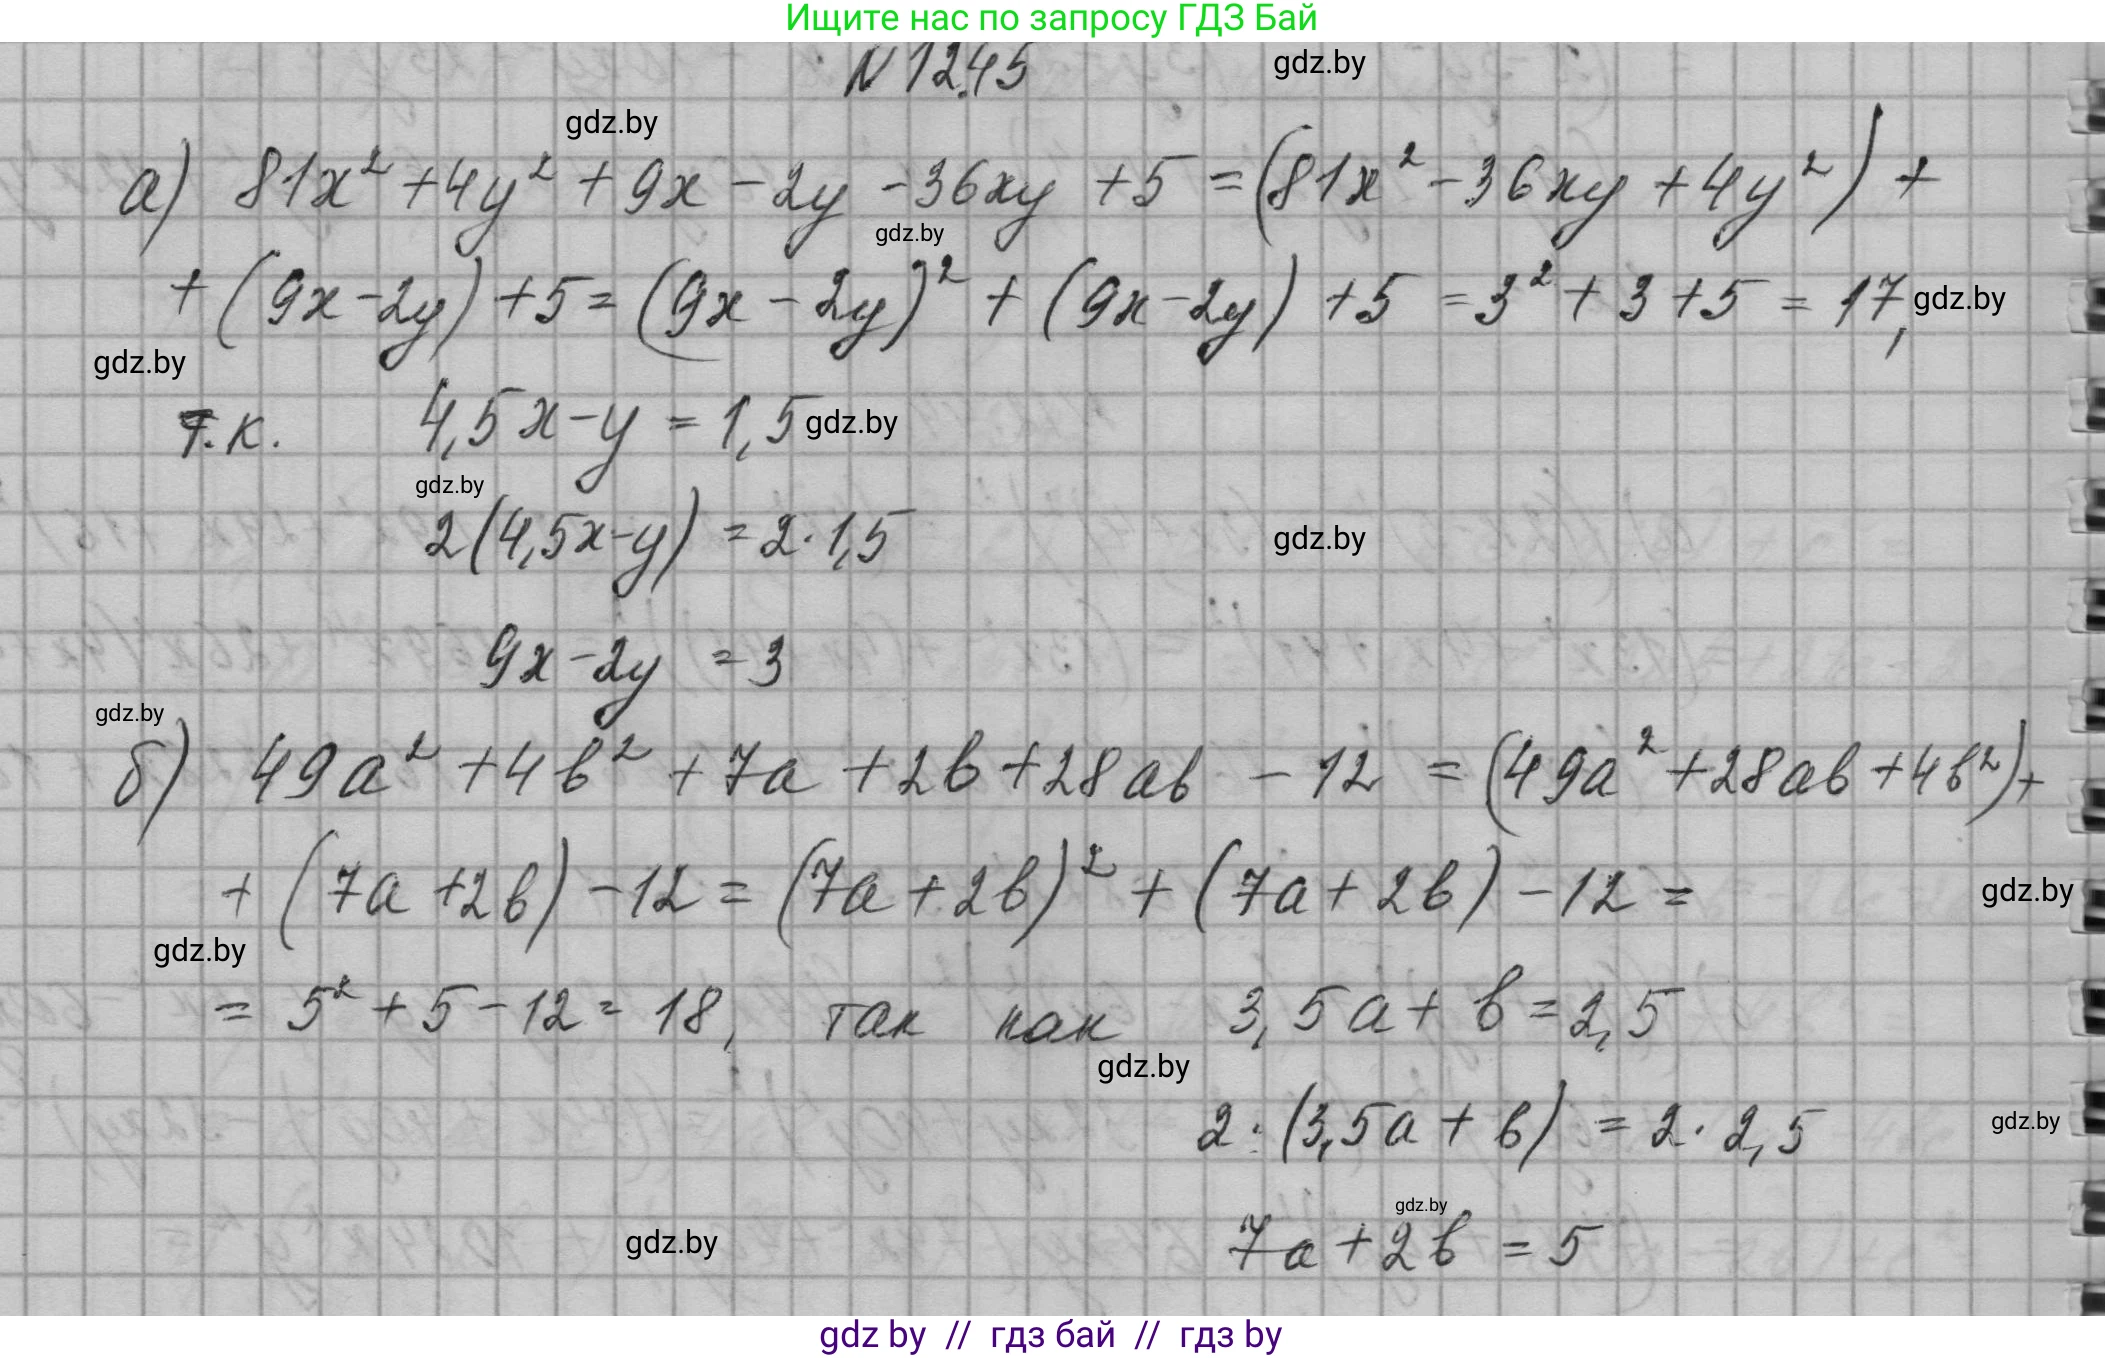 Ищите нас по запросу ГДЗ Бай
N 12.45
gdz.by
gdz.by
а) 81x² + 4y² + 9x - 2y - 36xy + 5 = (81x² - 36xy + 4y²) +
gdz.by
+ (9x - 2y) + 5 = (9x - 2y)² + (9x - 2y) + 5 = 3² + 3 + 5 = 17,
gdz.by
gdz.by
т.к. 4,5x - y = 1,5
gdz.by
gdz.by
2(4,5x - y) = 2 · 1,5
gdz.by
9x - 2y = 3
gdz.by
б) 49a² + 4b² + 7a + 2b + 28ab - 12 = (49a² + 28ab + 4b²) +
+ (7a + 2b) - 12 = (7a + 2b)² + (7a + 2b) - 12 =
gdz.by
gdz.by
= 5² + 5 - 12 = 18, так как 3,5a + b = 2,5
gdz.by
2 · (3,5a + b) = 2 · 2,5
gdz.by
gdz.by
7a + 2b = 5
gdz.by
gdz by // гдз бай // гдз by